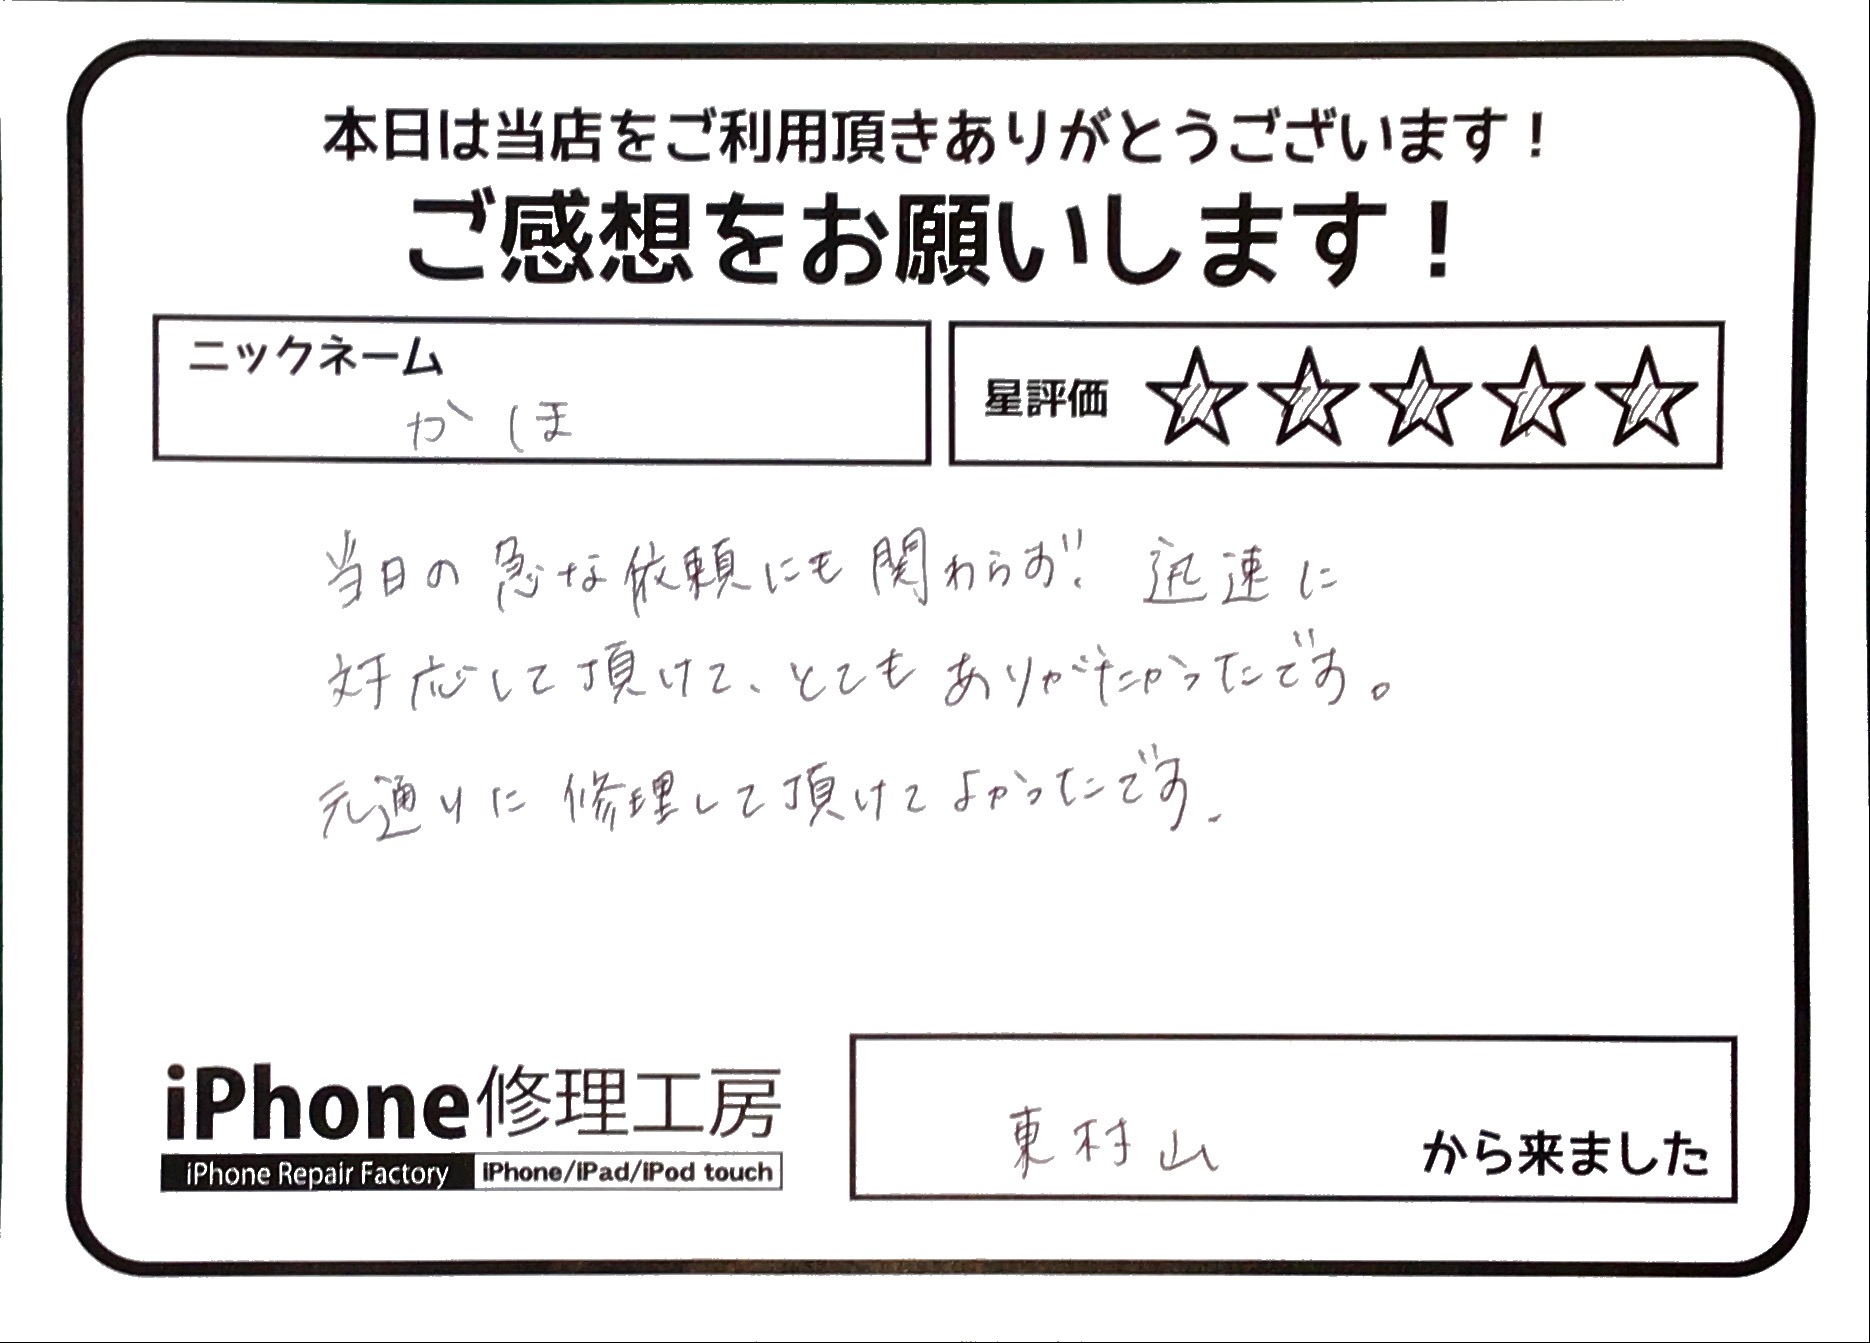 本日は当店をご利用頂きありがとうございます！
ご感想をお願いします！
ニックネーム
かほ
星評価
当日の急な依頼にも関わらず、迅速に
対応して頂けて、とてもありがたかったです。
元通りに修理して頂けてよかったです.
iPhone修理工房
iPhone Repair Factory iPhone/iPad/iPod touch
東村山 から来ました